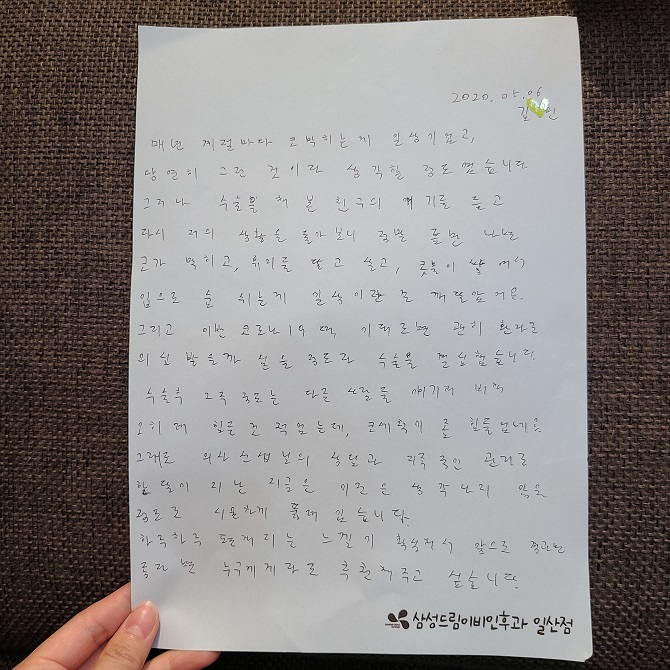 2020. 05. 06
김 빈
매년 계절마다 코막히는게 일상이었고,
당연히 그런 것이다 생각할 정도였습니다
그러나 수술을 해 본 친구의 얘기를 듣고
다시 저의 생활을 돌아보니 정말 틈만 나면
코가 막히고, 휴지를 달고 살고, 콧물이 쌓여서
입으로 숨 쉬는게 일상이란 걸 깨달았거든요.
그리고 이번 코로나19 때, 기침하면 괜히 환자로
의심 받을까 싶을 정도라 수술을 결심했습니다.
수술후 2주 정도는 다른 사람들 얘기에 비해
오히려 힘든 건 적었는데, 코세척기 좀 힘들었네요
그래도 의사 선생님의 상담과 지속적인 관리로
한 달이 지난 지금은 이전은 생각나지 않을
정도로 시원하게 뚫려 있습니다.
하루하루 편해지는 느낌이 확실해서 앞으로 경과만
좋다면 누구에게라도 추천해주고 싶습니다.
삼성드림이비인후과 일산점